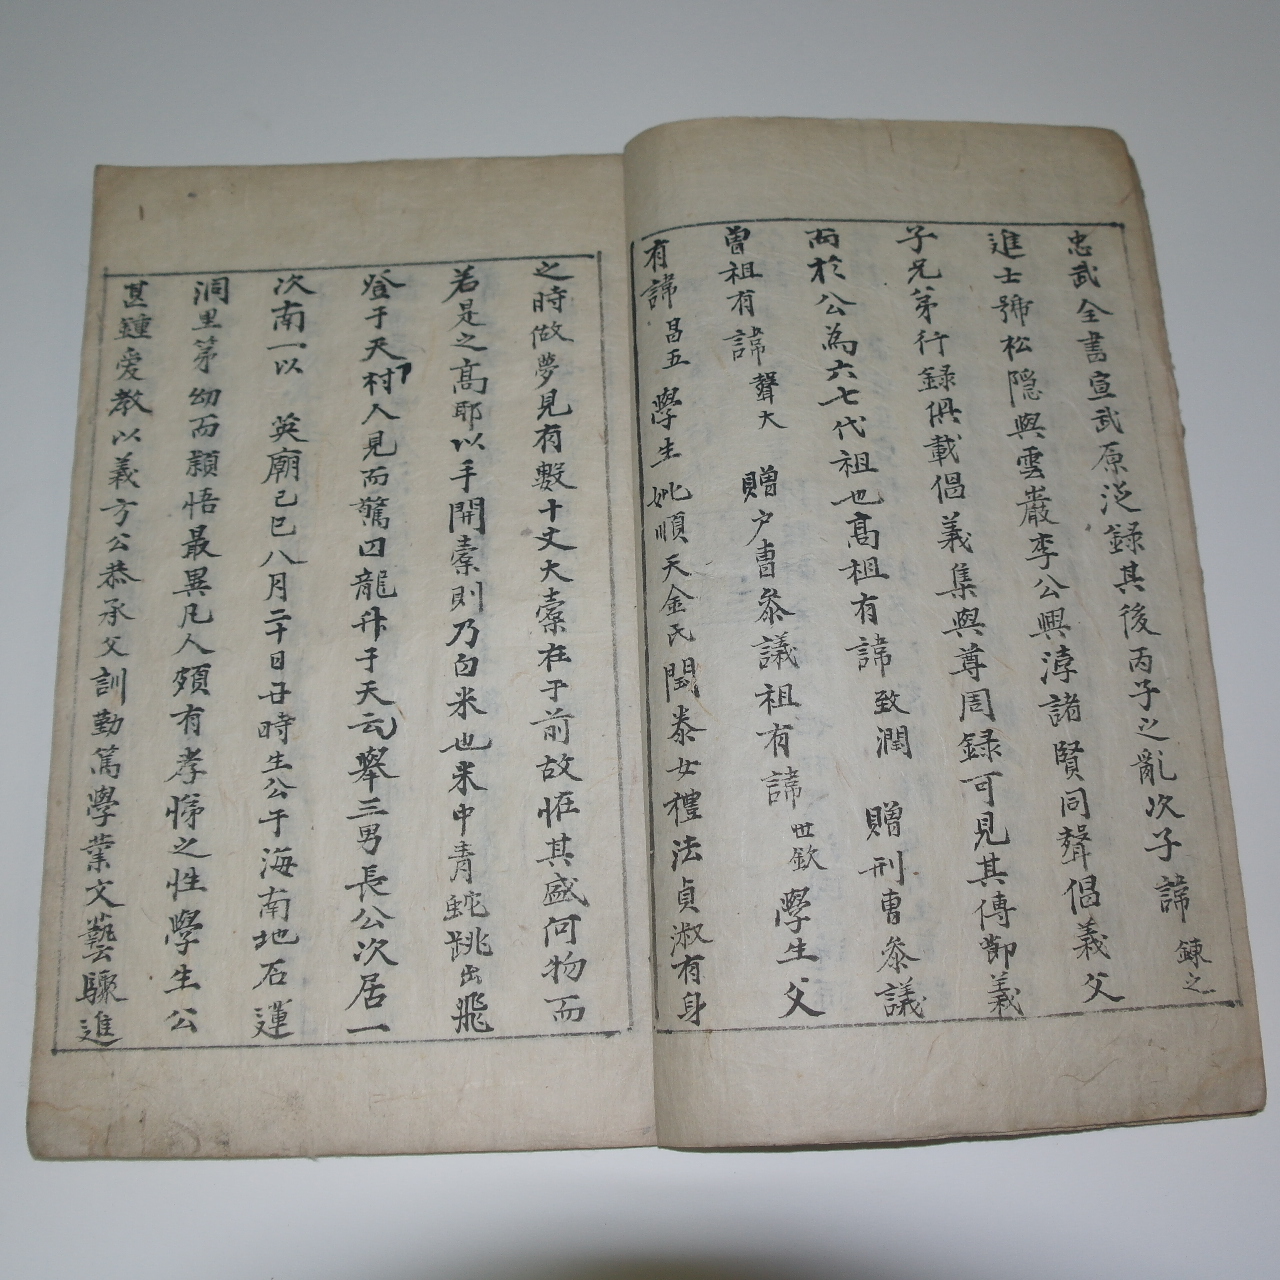 忠武全書宣武原從錄其後丙子之亂次子諱鍊之
進士號松隐與雲巖李公興浡諸賢同聲倡義父
子兄弟行録俱載倡義集與尊周録可見其傳節義
而於公為六七代祖也高祖有諱致潤 贈刑曹叅議
曾祖有諱聲大 贈户曹叅議祖有諱世欽學生父
有諱昌五學生妣順天金氏閏泰女禮法貞淑有身
之時做夢見有數十丈大橐在于前故怪其盛何物而
若是之高耶以手開橐則乃白米也米中青蛇跳出飛
登于天村人見而驚曰龍升于天云舉三男長公次居一
次南一以 英廟己巳八月二十日丑時生公于海南地石運
洞里第幼而穎悟最異凡人頗有孝悌之性學生公
甚鍾愛教以義方公恭承父訓勤篤學業文藝驟進